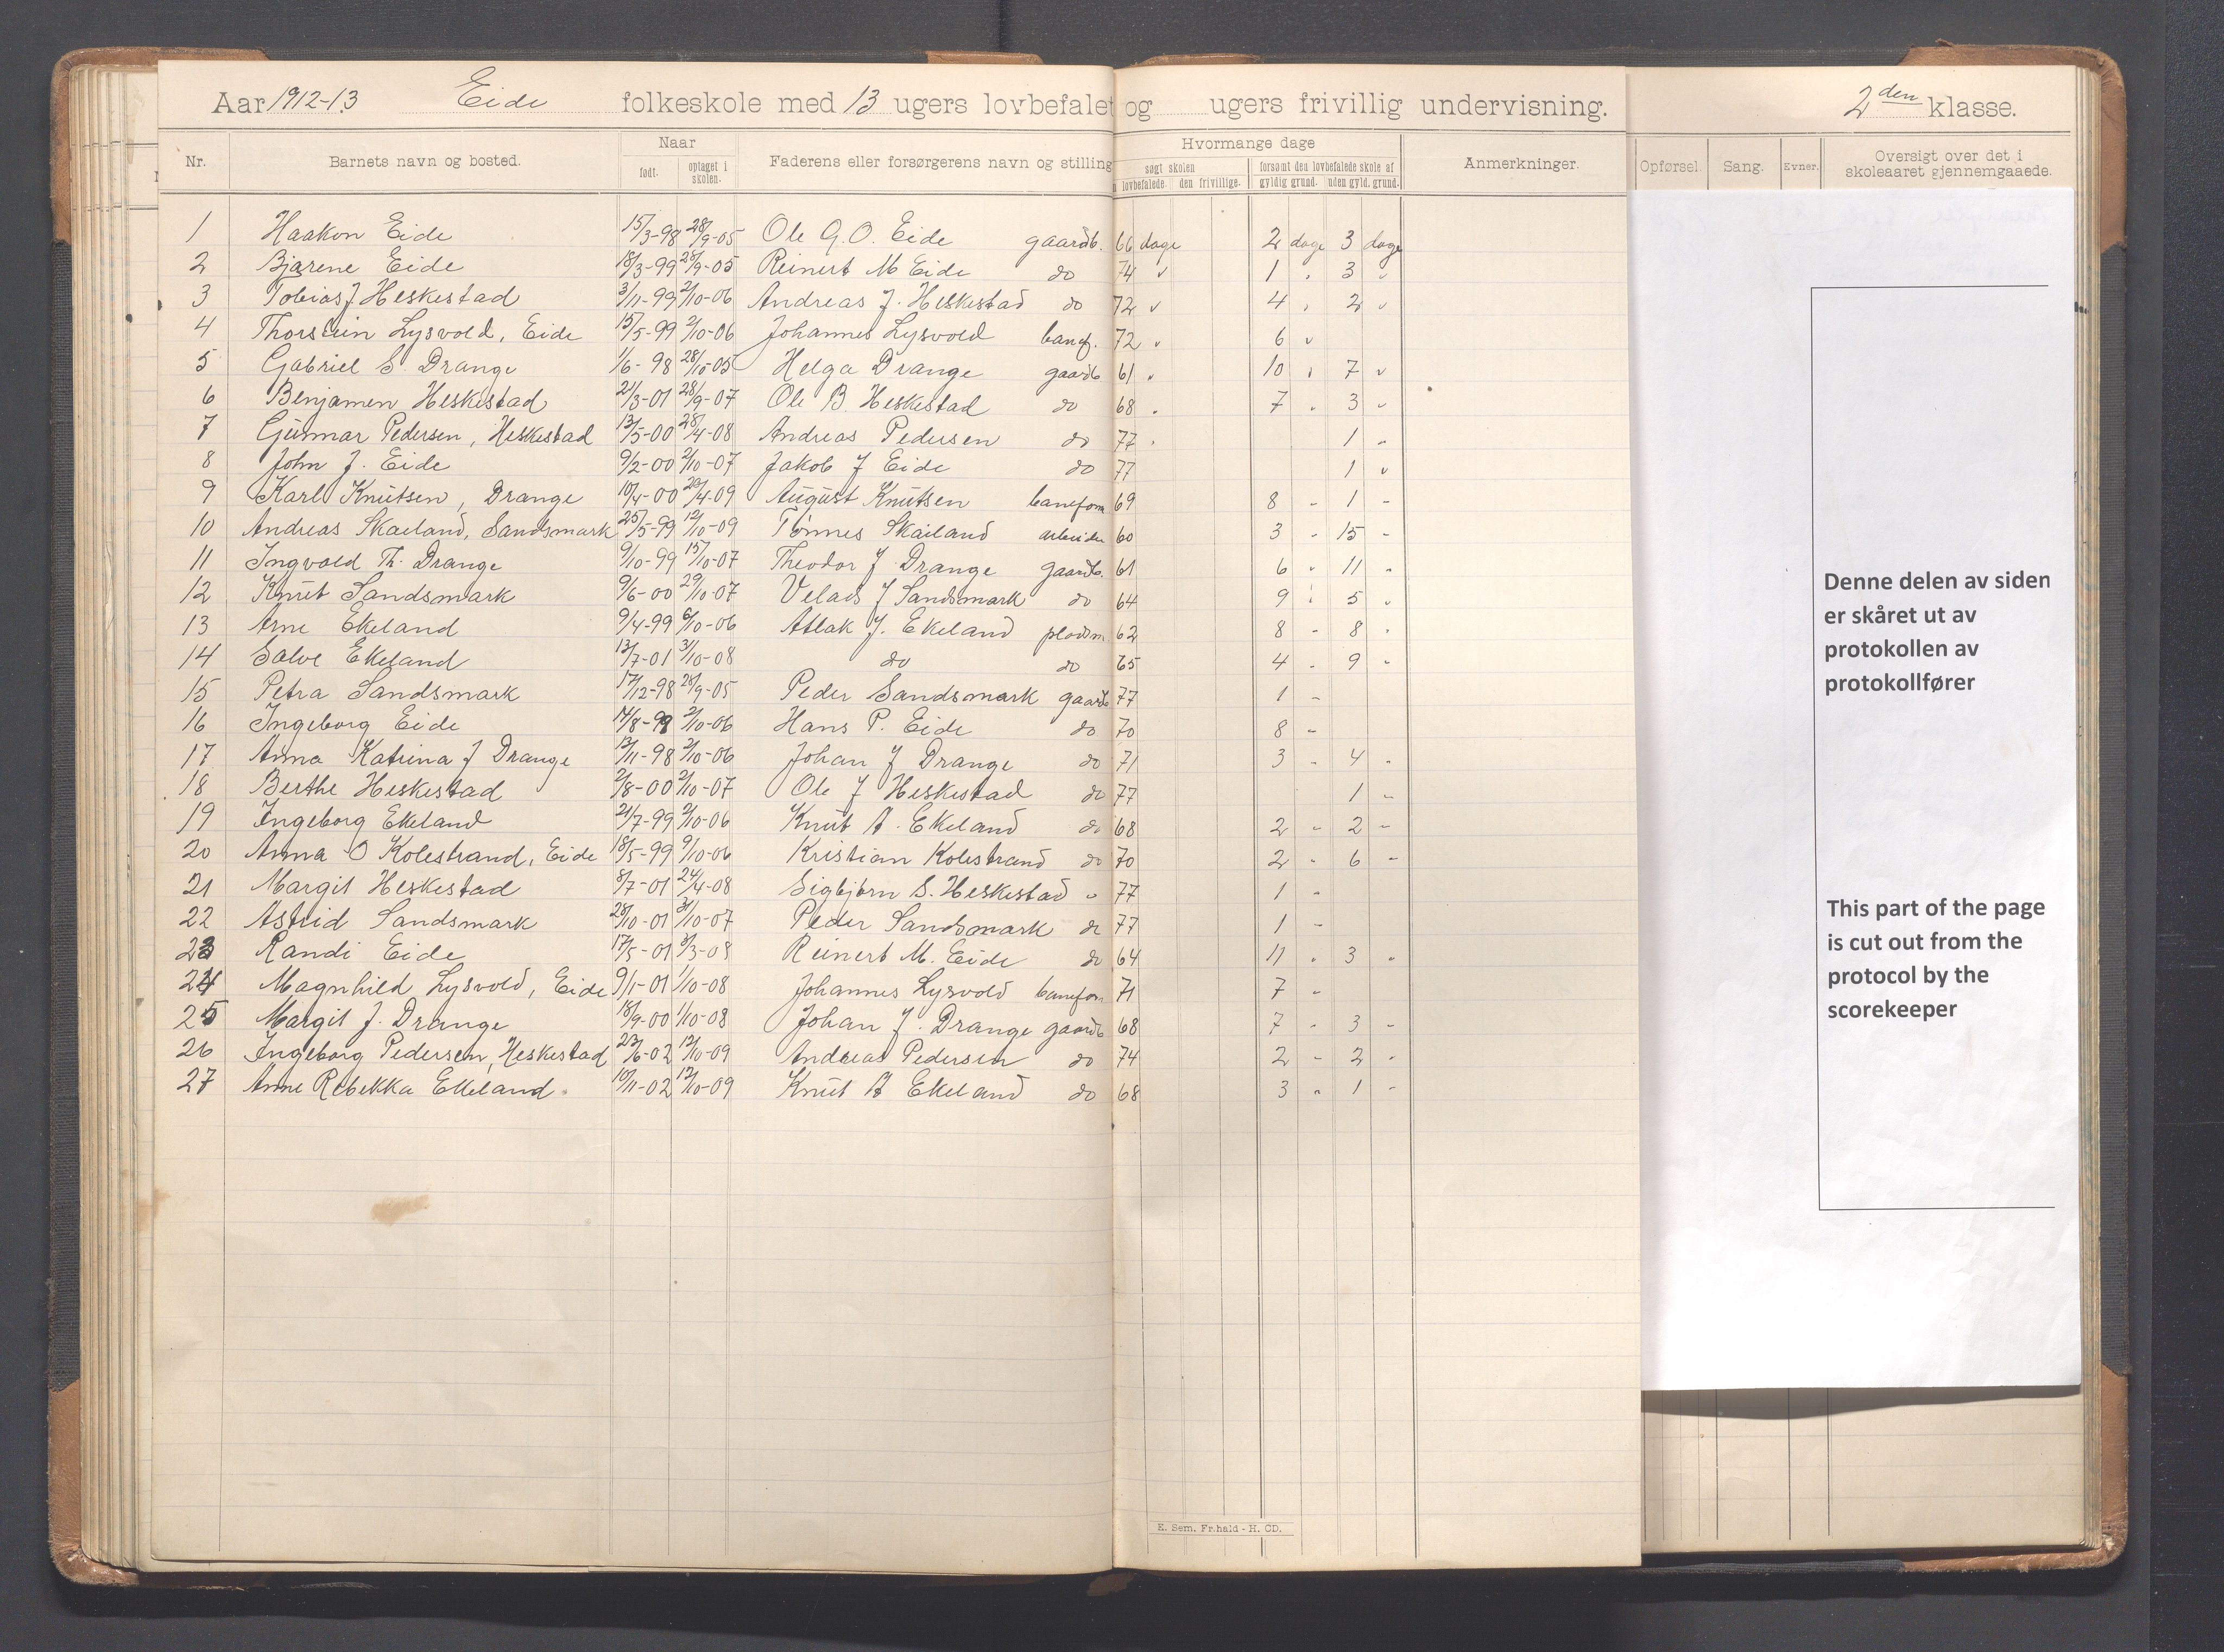 Aar 1912-13 Eide folkeskole med 13 ugers lovbefalet og ugers frivillig undervisning. 2den klasse.
Nr. Barnets navn og bosted. Naar født. optaget i skolen. Faderens eller forsørgerens navn og stilling Hvormange dage søgt skolen lovbefalede. den frivillige. forsømt den lovbefalede skole af gyldig grund. uden gyld. grund. Anmerkninger. Opførsel. Sang. Evner. Oversigt over det i skoleaaret gjennemgaaede.
1 Haakon Eide 15/3-98 28/9-05 Ole G.O. Eide gaardb. 66 dage 2 dage 3 dage
2 Bjarene Eide 18/3-99 28/9-05 Reinert M Eide do 74 " 1 " 3 "
3 Tobias J Heskestad 3/11-99 2/10-06 Andreas J. Heskestad do 72 " 4 " 2 "
4 Thorstein Lysvold, Eide 15/5-99 2/10-06 Johannes Lysvold banef. 72 " 6 "
5 Gabriel S. Drange 1/6-98 28/10-05 Helga Drange gaardb 61 " 10 " 7 "
6 Benjamen Heskestad 21/3-01 28/9-07 Ole B. Heskestad do 68 " 7 " 3 "
7 Gunnar Pedersen, Heskestad 13/5-00 28/4-08 Andreas Pedersen do 77 " 1 "
8 John J. Eide 9/2-00 2/10-07 Jakob J Eide do 77 1 "
9 Karl Knutsen, Drange 10/4-00 29/4-09 August Knutsen baneform 69 8 - 1 -
10 Andreas Skailand, Sandsmark 25/5-99 12/10-09 Tønnes Skailand arbeider 60 3 - 15 -
11 Ingvald Th. Drange 9/10-99 15/10-07 Theodor J Drange gaardb. 61 6 " 11 "
12 Knut Sandsmark 9/6-00 29/10-07 Velads J Sandsmark do 64 9 " 5 "
13 Arne Ekeland 9/4-99 6/10-06 Atlak J. Ekeland pladsm. 62 8 - 8 "
14 Salve Ekeland 13/7-01 3/10-08 do do 65 4 - 9 "
15 Petra Sandsmark 17/12-98 28/9-05 Peder Sandsmark gaardb 77 1 -
16 Ingeborg Eide 14/8-99 2/10-06 Hans P. Eide do 70 8 -
17 Anna Katrina J Drange 12/11-98 2/10-06 Johan J Drange do 71 3 - 4 -
18 Berthe Heskestad 2/8-00 2/10-07 Ole J Heskestad do 77 1 -
19 Ingeborg Ekeland 21/7-99 2/10-06 Knut A. Ekeland do 68 2 - 2 -
20 Anna O Kolestrand, Eide 18/5-99 9/10-06 Kristian Kolestrand do 70 2 - 6 -
21 Margit Heskestad 8/7-01 24/4-08 Sigbjørn S. Heskestad " 77 1 "
22 Astrid Sandsmark 28/10-01 31/10-07 Peder Sandsmark do 77 1 -
23 Randi Eide 17/5-01 3/3-08 Reinert M. Eide do 64 11 " 3 "
24 Magnhild Lysvold, Eide 9/1-01 1/10-08 Johannes Lysvold baneform 71 7 -
25 Margit J. Drange 18/9-00 1/10-08 Johan J. Drange gaardb 68 7 - 3 -
26 Ingeborg Pedersen, Heskestad 23/6-02 12/10-09 Andreas Pedersen do 74 2 - 2 -
27 Anne Rebekka Ekeland 10/11-02 12/10-09 Knut A Ekeland do 68 3 " 1 -
Denne delen av siden
er skåret ut av
protokollen av
protokollfører
This part of the page
is cut out from the
protocol by the
scorekeeper
E. Sem. Fr.hald - H. CD.